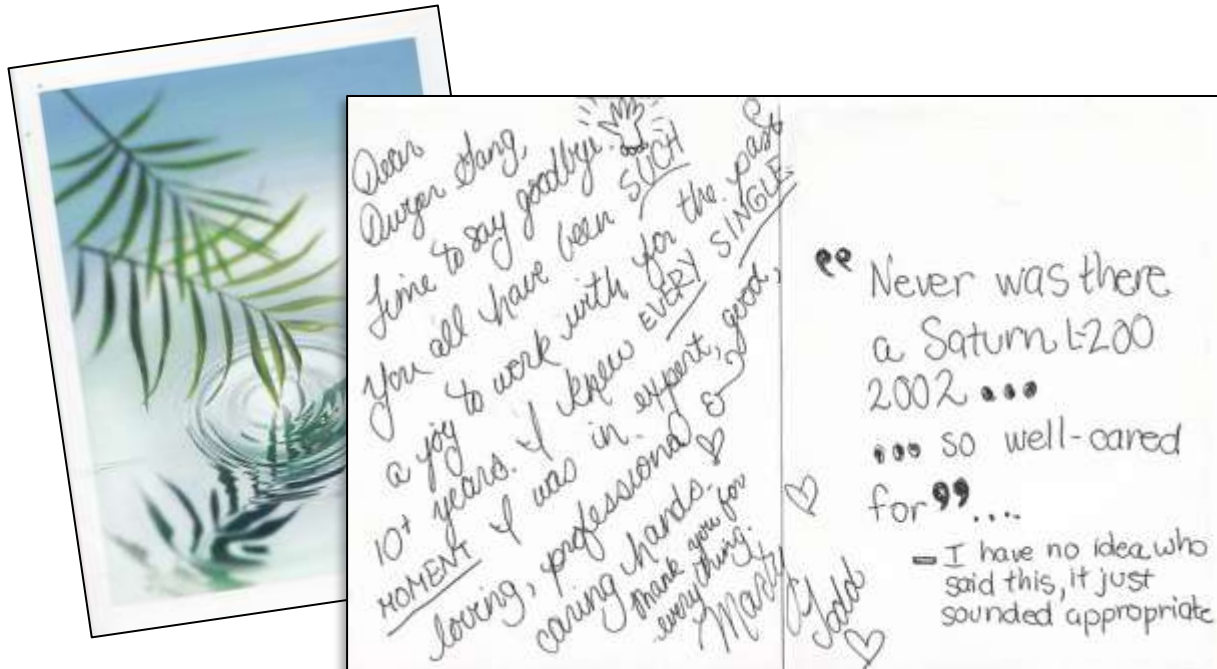 Dear
Gang,
Time to say goodbye.
You all have been SUCH
a joy to work with for the past
10+ years. I knew EVERY SINGLE
MOMENT I was in expert, good,
loving, professional &
caring hands.
Thank you for
everything.
Todd
❝ Never was there
a Saturn L-200
2002 ...
... so well-cared
for❞....
- I have no idea who
said this, it just
sounded appropriate